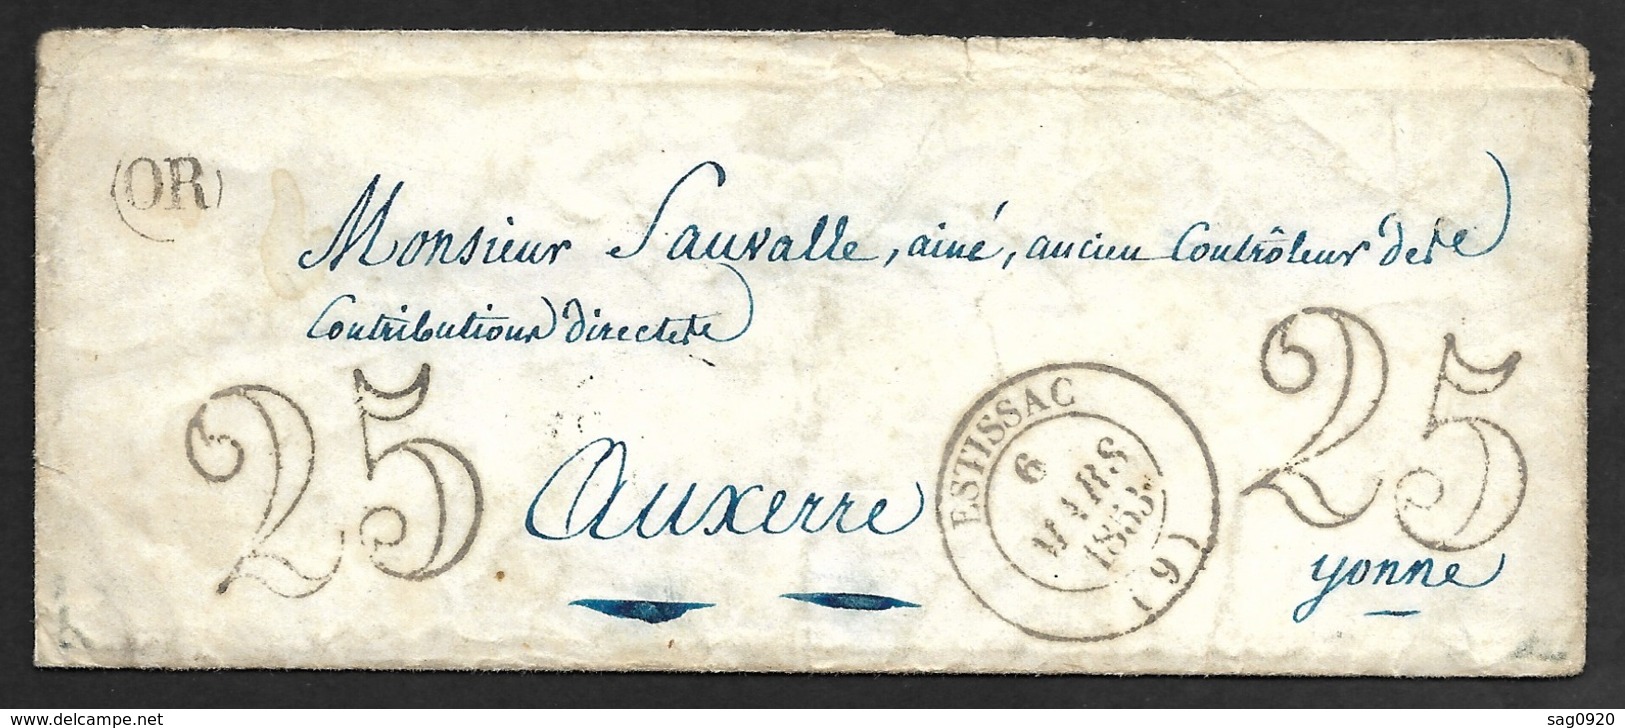 (OR)
Monsieur Sauvalle, ainé, ancien Contrôleur des
Contributions directes
25
25
Auxerre
ESTISSAC
6
MARS
1853
(9)
yonne
www.delcampe.net
sag0920